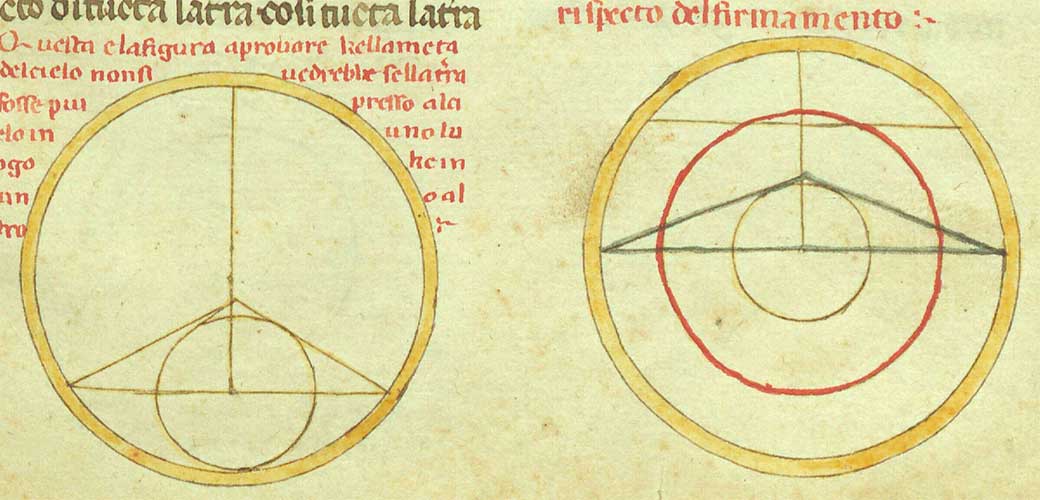 ditucta latra cosi tucta latra
Questa e lafigura aprouare kellameta
delcielo nonsi uedrebbe sellatra
fosse piu presso alci
elo in uno lu
ogo ke in
un o al
tro
rispecto delfirmamento :~